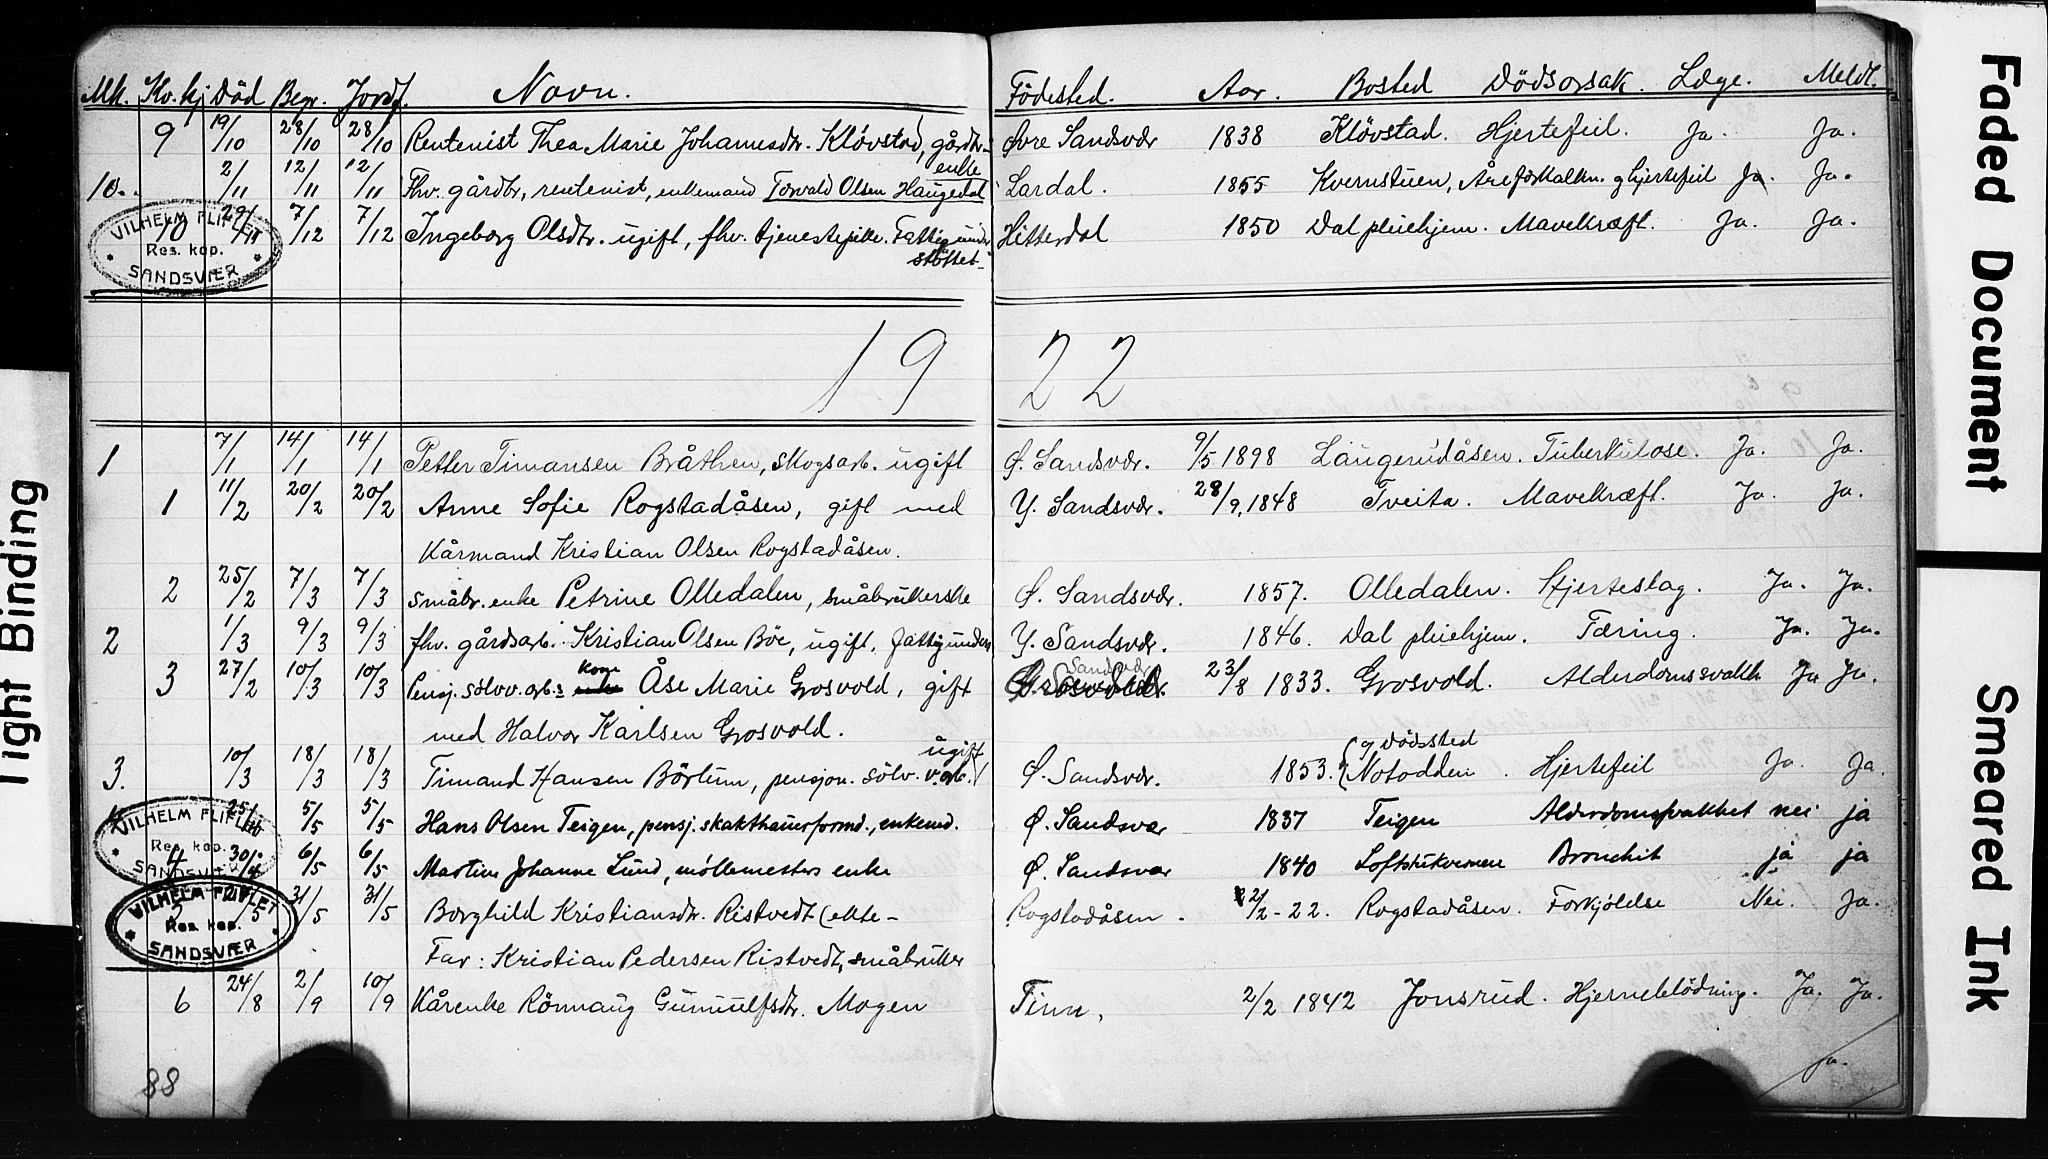 Mk. Kv.kj Död Begr. Jordf. Navn. Födested. Aar. Bosted Dödsorsak. Læge. Meldt.
9 19/10 28/10 28/10 Rentenist Thea Marie Johannesdtr. Klövstad, gårdbr.- Øvre Sandsvær 1838 Klövstad. Hjertefeil. Ja. Ja.
enke
10. 2/11 12/11 12/11 Fhv. gårdbr, rentenist, enkemand Torvald Olsen Haugedal Lardal. 1855 Kvernstuen, Åreforkalkn. og hjertefeil Ja. Ja.
10 29/11 7/12 7/12 Ingeborg Olsdtr. ugift, fhv. tjenestepike. Fattigunder Hitterdal 1850 Dal pleiehjem. Mavekræft. Ja. Ja.
støttet
VILHELM FLIFLET
Res. kap.
SANDSVÆR
1922
1 7/1 14/1 14/1 Petter Timansen Bråthen, skogsarb. ugift Ø. Sandsvær. 9/5 1898 Laugerudåsen. Tuberkulose. Ja. Ja.
1 11/2 20/2 20/2 Anne Sofie Rogstadåsen, gift med Y. Sandsvær. 28/9, 1848 Tveita. Mavekræft. Ja. Ja.
Kårmand Kristian Olsen Rogstadåsen.
2 25/2 7/3 7/3 småbr. enke Petrine Olledalen, småbrukerske Ø. Sandsvær. 1857. Olledalen. Hjerteslag. Ja. Ja.
2 1/3 9/3 9/3 fhv. gårdsarb. Kristian Olsen Böe, ugift, fattigunders Y. Sandsvær. 1846. Dal pleiehjem. Tæring. Ja. Ja.
3 27/2 10/3 10/3 Pensj. sølvv. arb.s kone Åse Marie Grosvold, gift Sandsvær 23/8 1833. Grosvold. Alderdomssvakh. Ja Ja.
med Halvor Karlsen Grosvold.
3. 10/3 18/3 18/3 Timand Hansen Börtum, pensjon. sölv. v. arb. ugift Ø. Sandsvær. 1853. og Dödssted Notodden. Hjertefeil Ja. Ja.
4 25/4 5/5 5/5 Hans Olsen Teigen, pensj. skakthauerformd., enkemd. Ø. Sandsvær 1837 Teigen Alderdomssvakhet nei ja
VILHELM FLIFLET
Res. kap.
SANDSVÆR
4 30/4 6/5 6/5 Martine Johanne Lund, møllemesters enke Ø. Sandsvær 1840 Loftstukvernene Bronchit ja ja
5 31/5 31/5 Borghild Kristiansdtr. Ristvedt (ekte- Rogstadåsen. 2/2-22. Rogstadåsen. Forkjölelse Nei. Ja.
VILHELM FLIFLET
Res. kap.
SANDSVÆR
Far: Kristian Pedersen Ristvedt, småbruker
6 24/8 2/9 10/9 Kårenke Rönnaug Gunnulfsdtr. Mogen Tinn, 2/2 1842 Jonsrud. Hjerneblödning. Ja. Ja.
ja.
88
Tight Binding
Faded Document
Smeared Ink